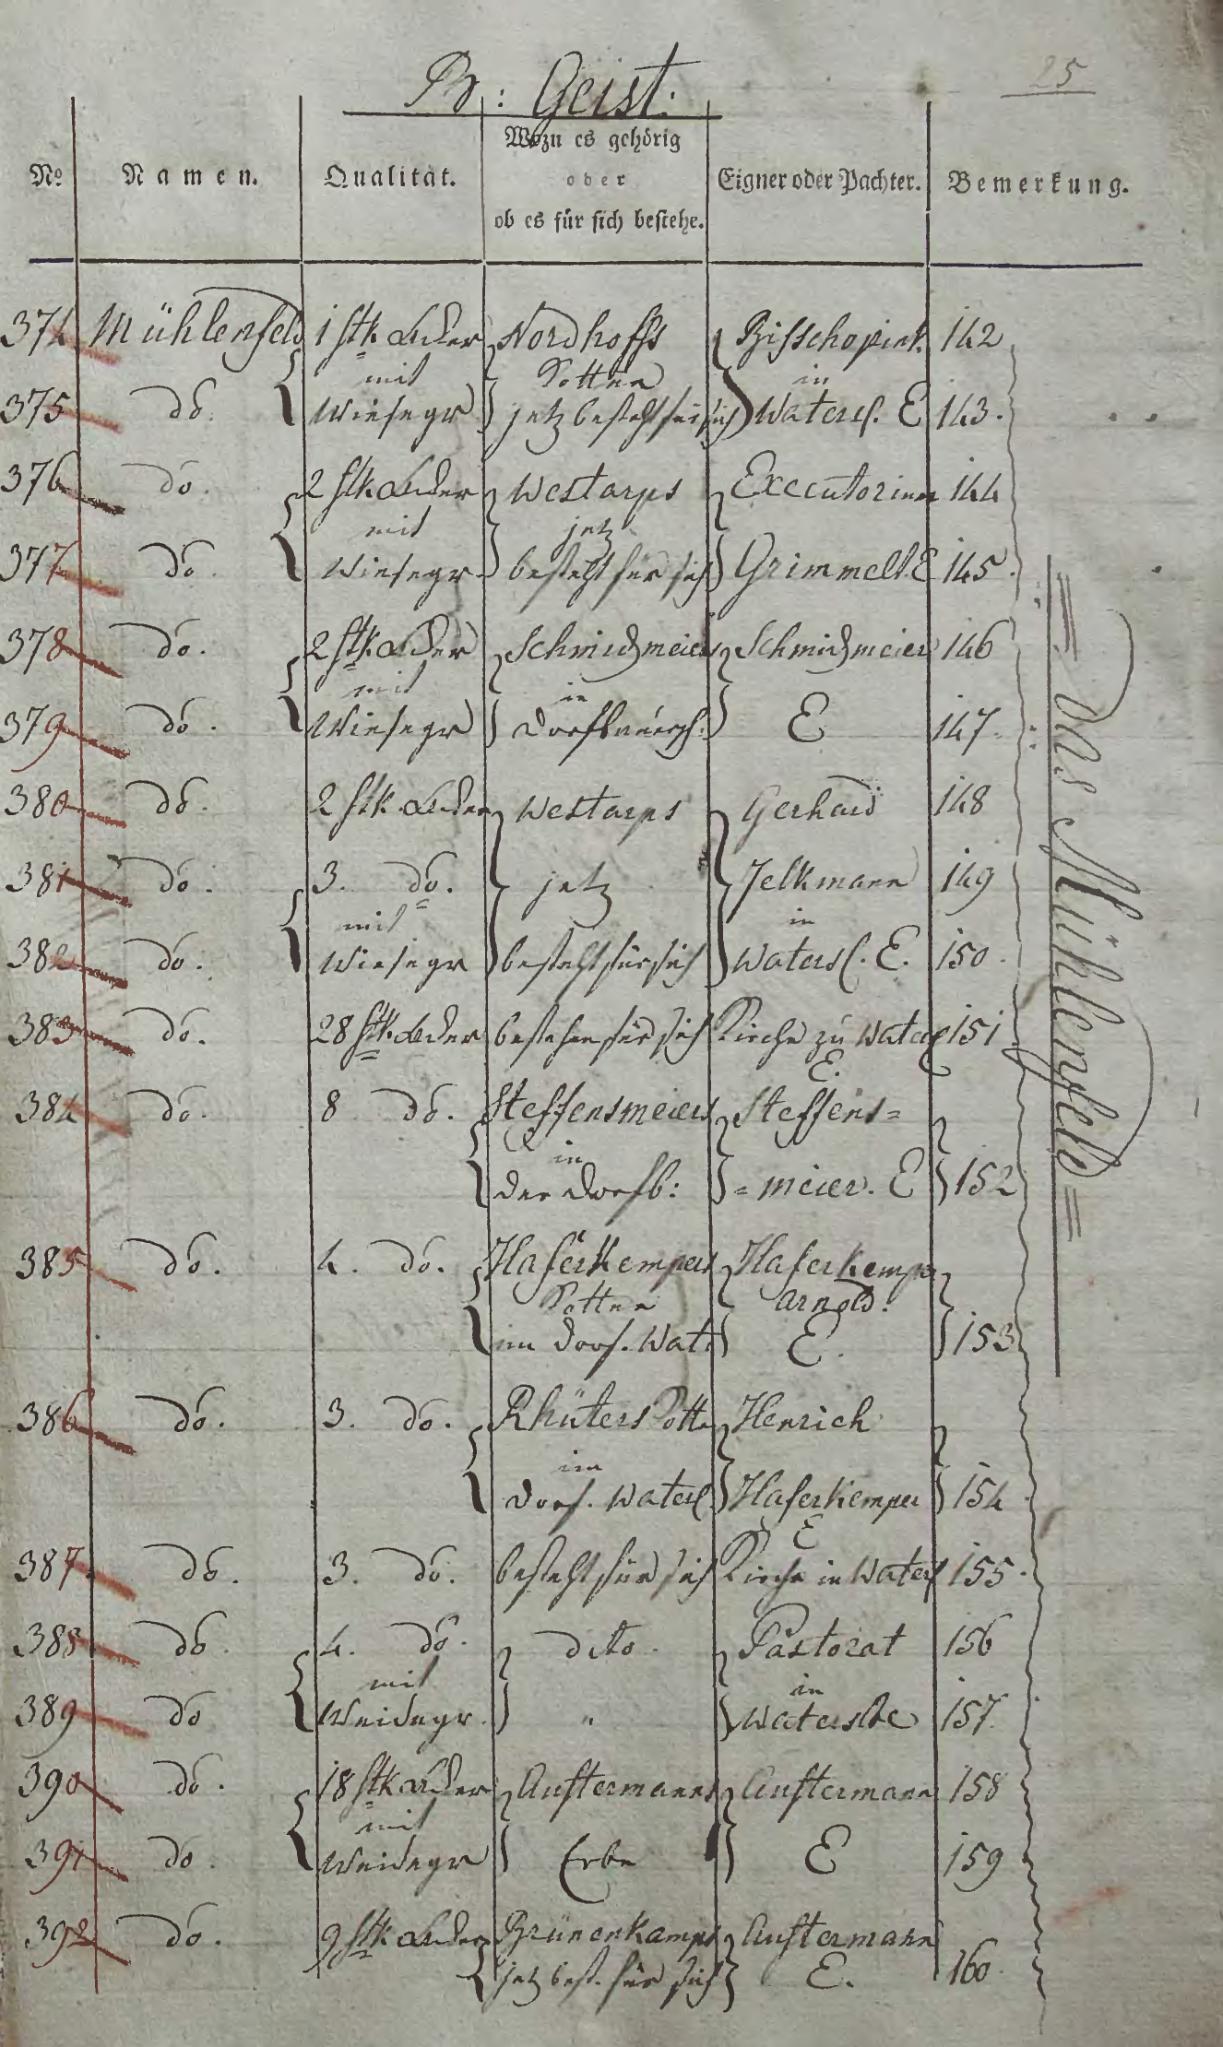 25
B: Geist:
No Namen. Qualität. Wozu es gehörig oder ob es für sich bestehe. Eigner oder Pachter. Bemerkung.
374 Mühlenfeld 1 Stk Acker Nordhoffs Bisschopink 142
mit Kotten in
375 do. Wiesegr. jetz besteht für sich Watersl. E 143.
376 do. 2 Stk Acker Westarps Executorium 144
mit jetz
377 do. Wiesegr. besteht für sich Grimmelt E 145.
378 do. 2 Stk Acker Schmidmeiers Schmidmeier 146
mit in
379 do. Wiesegr Dorfbauersch: E 147.
380 do. 2 Stk. Acker Westarps Gerhard 148
381 do. 3. do. jetz Jelkmann 149
mit in
382 do. Wiesegr besteht für sich Watersl. E. 150.
383 do. 28 Stk Acker bestehen für sich Kirche zu Watersl 151
E.
384 do. 8 do. Steffensmeiers Steffens=
in
der Dorfb: =meier. E 152
385 do. 4. do. Haferkempers Haferkemper
Kotten Arnold.
im Dorf. Wat. E. 153
386 do. 3. do. Rhüters Kotten Henrich
im
Dorf. Watersl. Haferkemper 154
E
387 do. 3. do. besteht für sich Kirche in Watersl 155.
388 do. 4. do. dito. Pastorat 156
mit in
389 do Weidegr. " Watersloe 157.
390 do. 18 Stk Acker Austermanns Austermann 158
mit
391 do. Weidegr Erbe E 159
392 do. 9 Stk Acker Brünenkamps Austermann
jetz best. für sich E. 160.
= das Mühlenfeld =